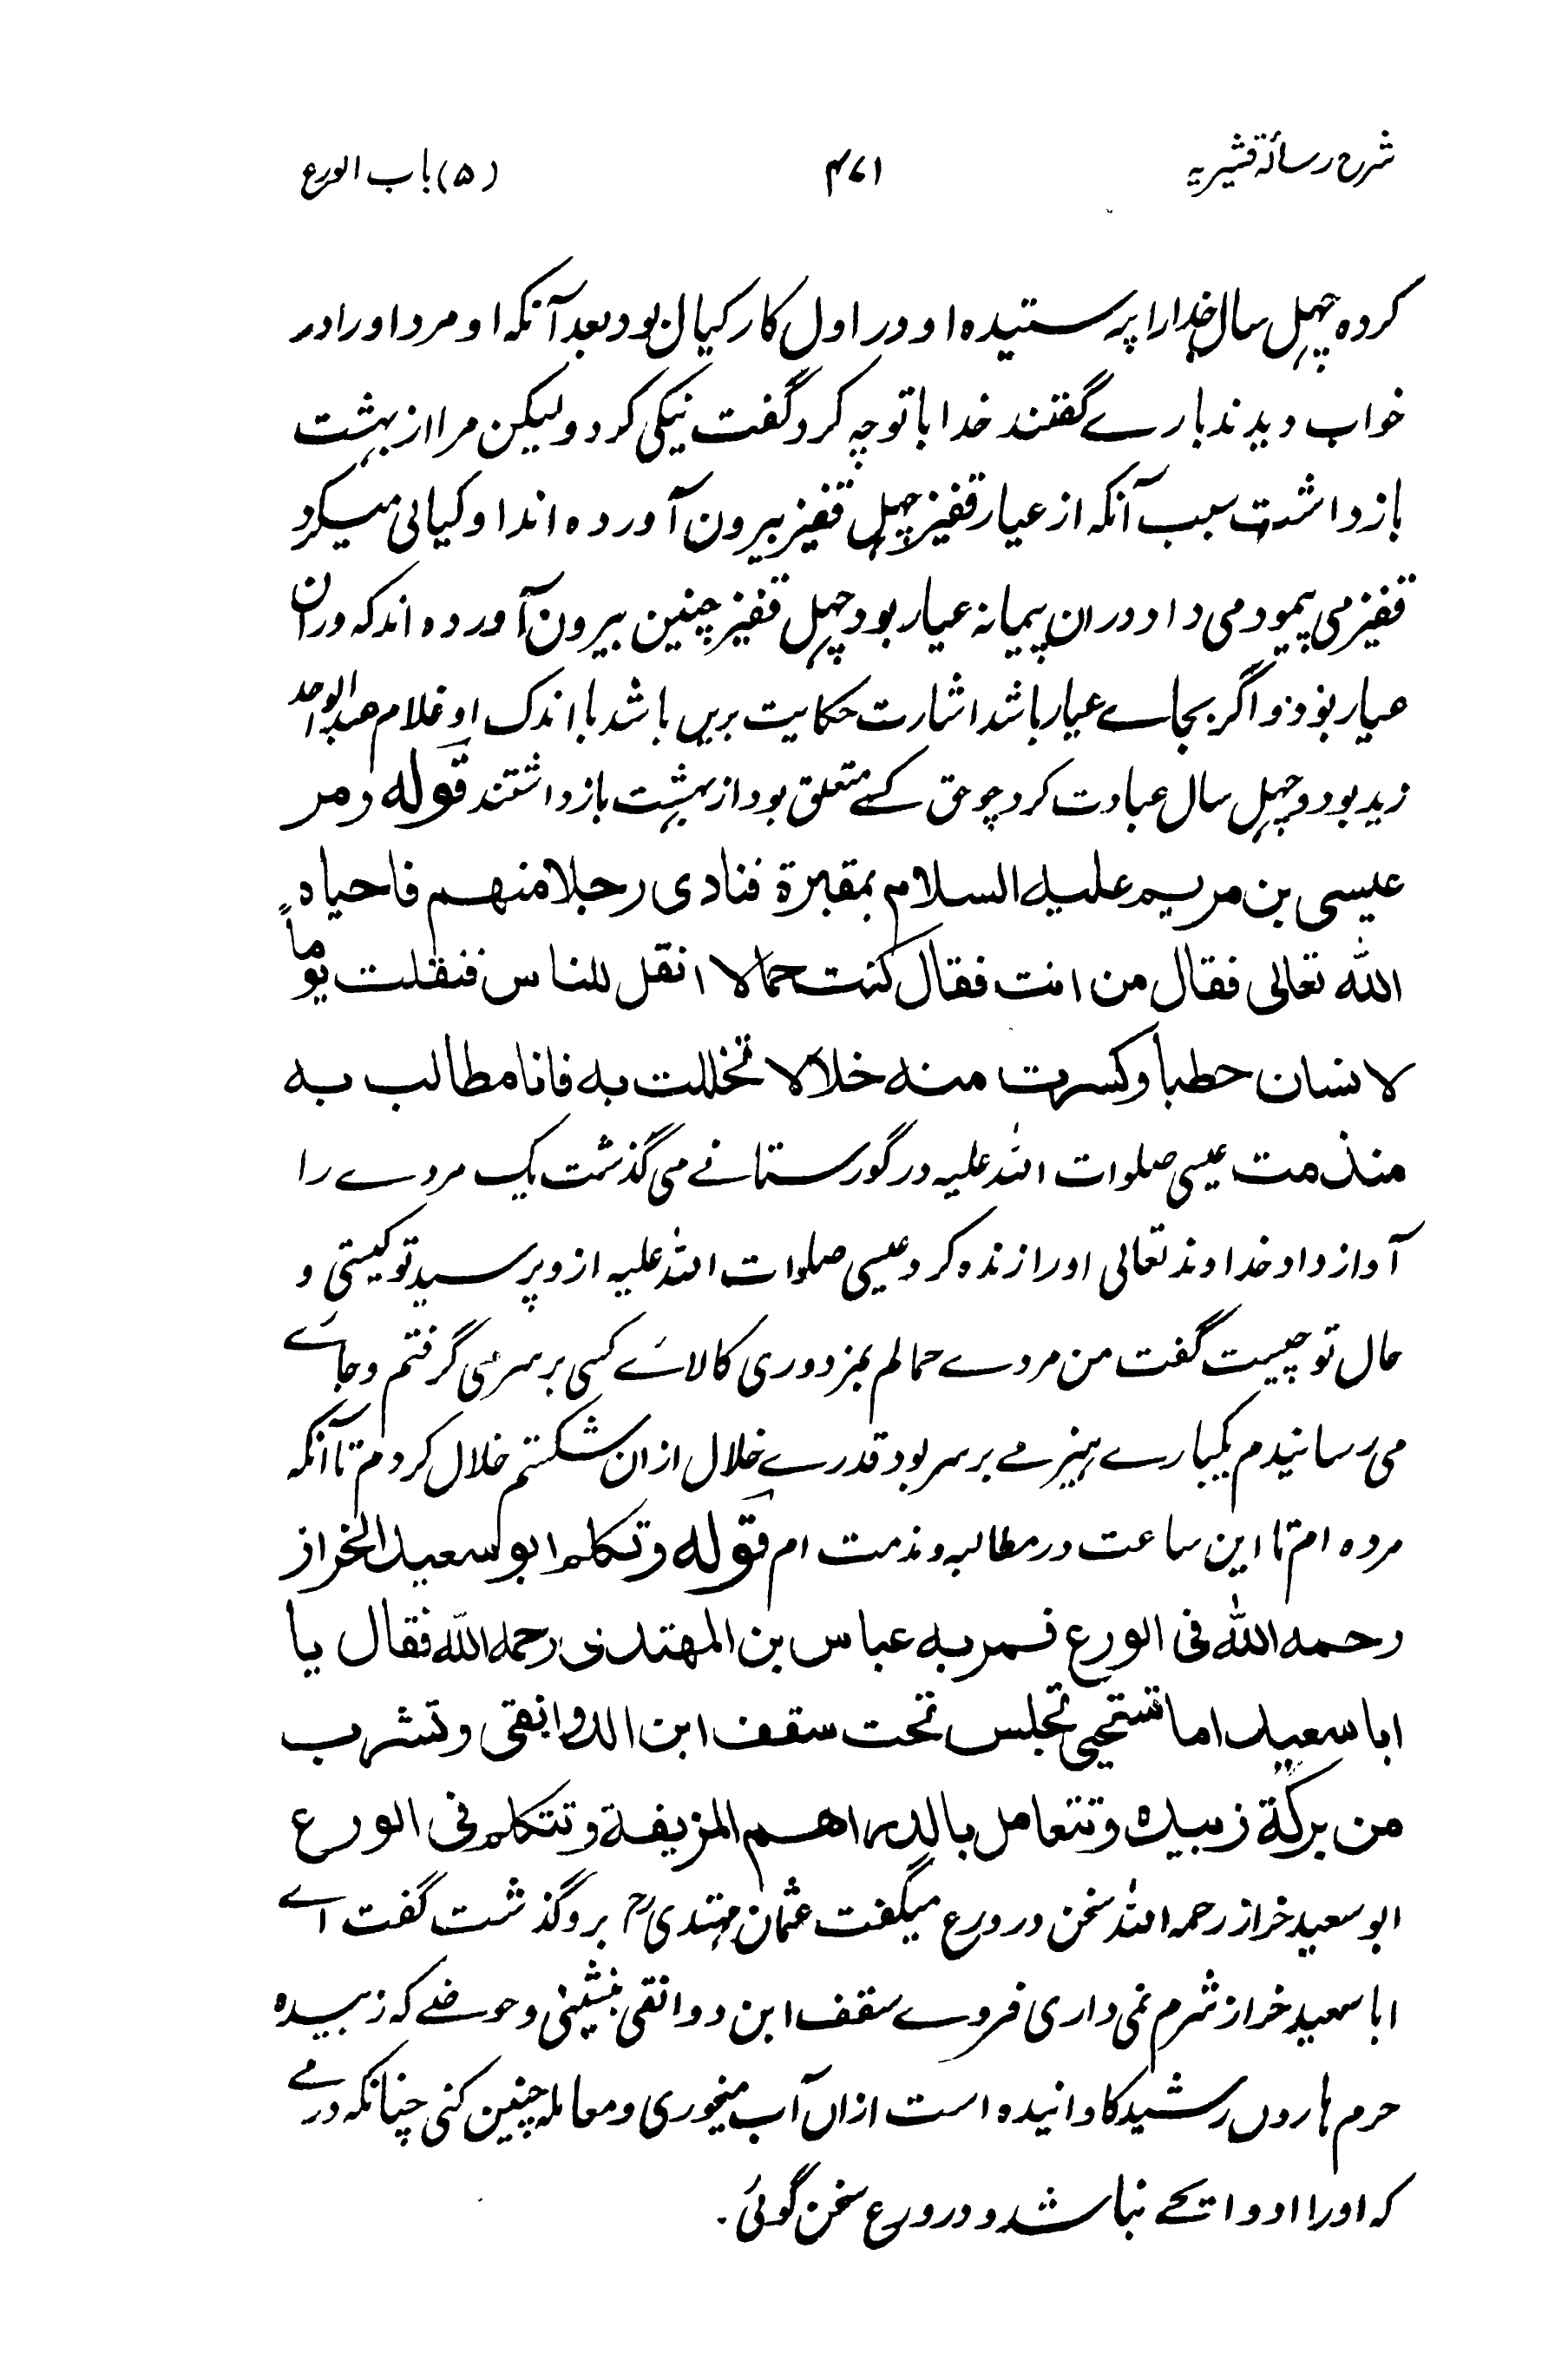 شرح رسالۂ قشیریہ ۴۷۱ (۵) باب الورع
کرده چہل سال خدا را پرستیده او در اول کار کیال بود بعد آنکہ او مرد او را در
خواب دیدند بارے گفتند خدا با تو چہ کرد گفت نیکی کرد ولیکن مرا از بہشت
بازداشت سبب آنکہ از عیار قفیز چہل قفیز بیرون آورده اند او کیالی میکرد
قفیز می پیمود می داد دران پیمانہ عیار بود چہل قفیز چنین بیرون آورده اند کہ دران
عیار بود و اگر بجاے عیار باشد اشارت حکایت بریں باشد با اندک او غلام عبد الواحد
زید بود و چہل سال عبادت کرد چو حق کسے متعلق بود از بہشت بازداشتند قوله ومر
عیسی بن مریم علیه السلام بمقبرة فنادی رجلا منهم فاحیاه
الله تعالی فقال من انت فقال کنت حمالا انقل للناس فنقلت یوماً
لانسان حطباً وکسرت منه خلالا تخللت به فانا مطالب به
منذ مت عیسی صلوات اللہ علیہ در گورستانے می گذشت یک مردے را
آواز داد خداوند تعالی او را زنده کرد عیسی صلوات اللہ علیہ ازو پرسید تو کیستی و
حال تو چیست گفت من مردے حمالم بمزدوری کالاے کسی بر سر می گرفتم و جاے
می رسانیدم یکبارے ہیزمے بر سر بود قدرے خلال ازان شکستم خلال کردم تا آنکہ
مرده ام تا این ساعت در مطالبہ و ندمت ام قوله وتکلم ابو سعید الخراز
رحمه الله فی الورع فمر به عباس بن المهتدی رحمه الله فقال یا
ابا سعید اما تستحیی تجلس تحت سقف ابن الدوانقی وتشرب
من برکة زبیدة وتتعامل بالدراهم المزیفة وتتکلم فی الورع
ابو سعید خراز رحمہ اللہ سخن در ورع میگفت عثمان مہتدی رح برو گذشت گفت اے
ابا سعید خراز شرم نمی داری فروے سقف ابن دوانقی بنشینی و حوضے کہ زبیده
حرم ہاروں رشید کاوانیده است ازاں آب میخوری و معاملہ چنین کنی چنانکہ درمے
کہ او را نباشد و در ورع سخن گوئی.